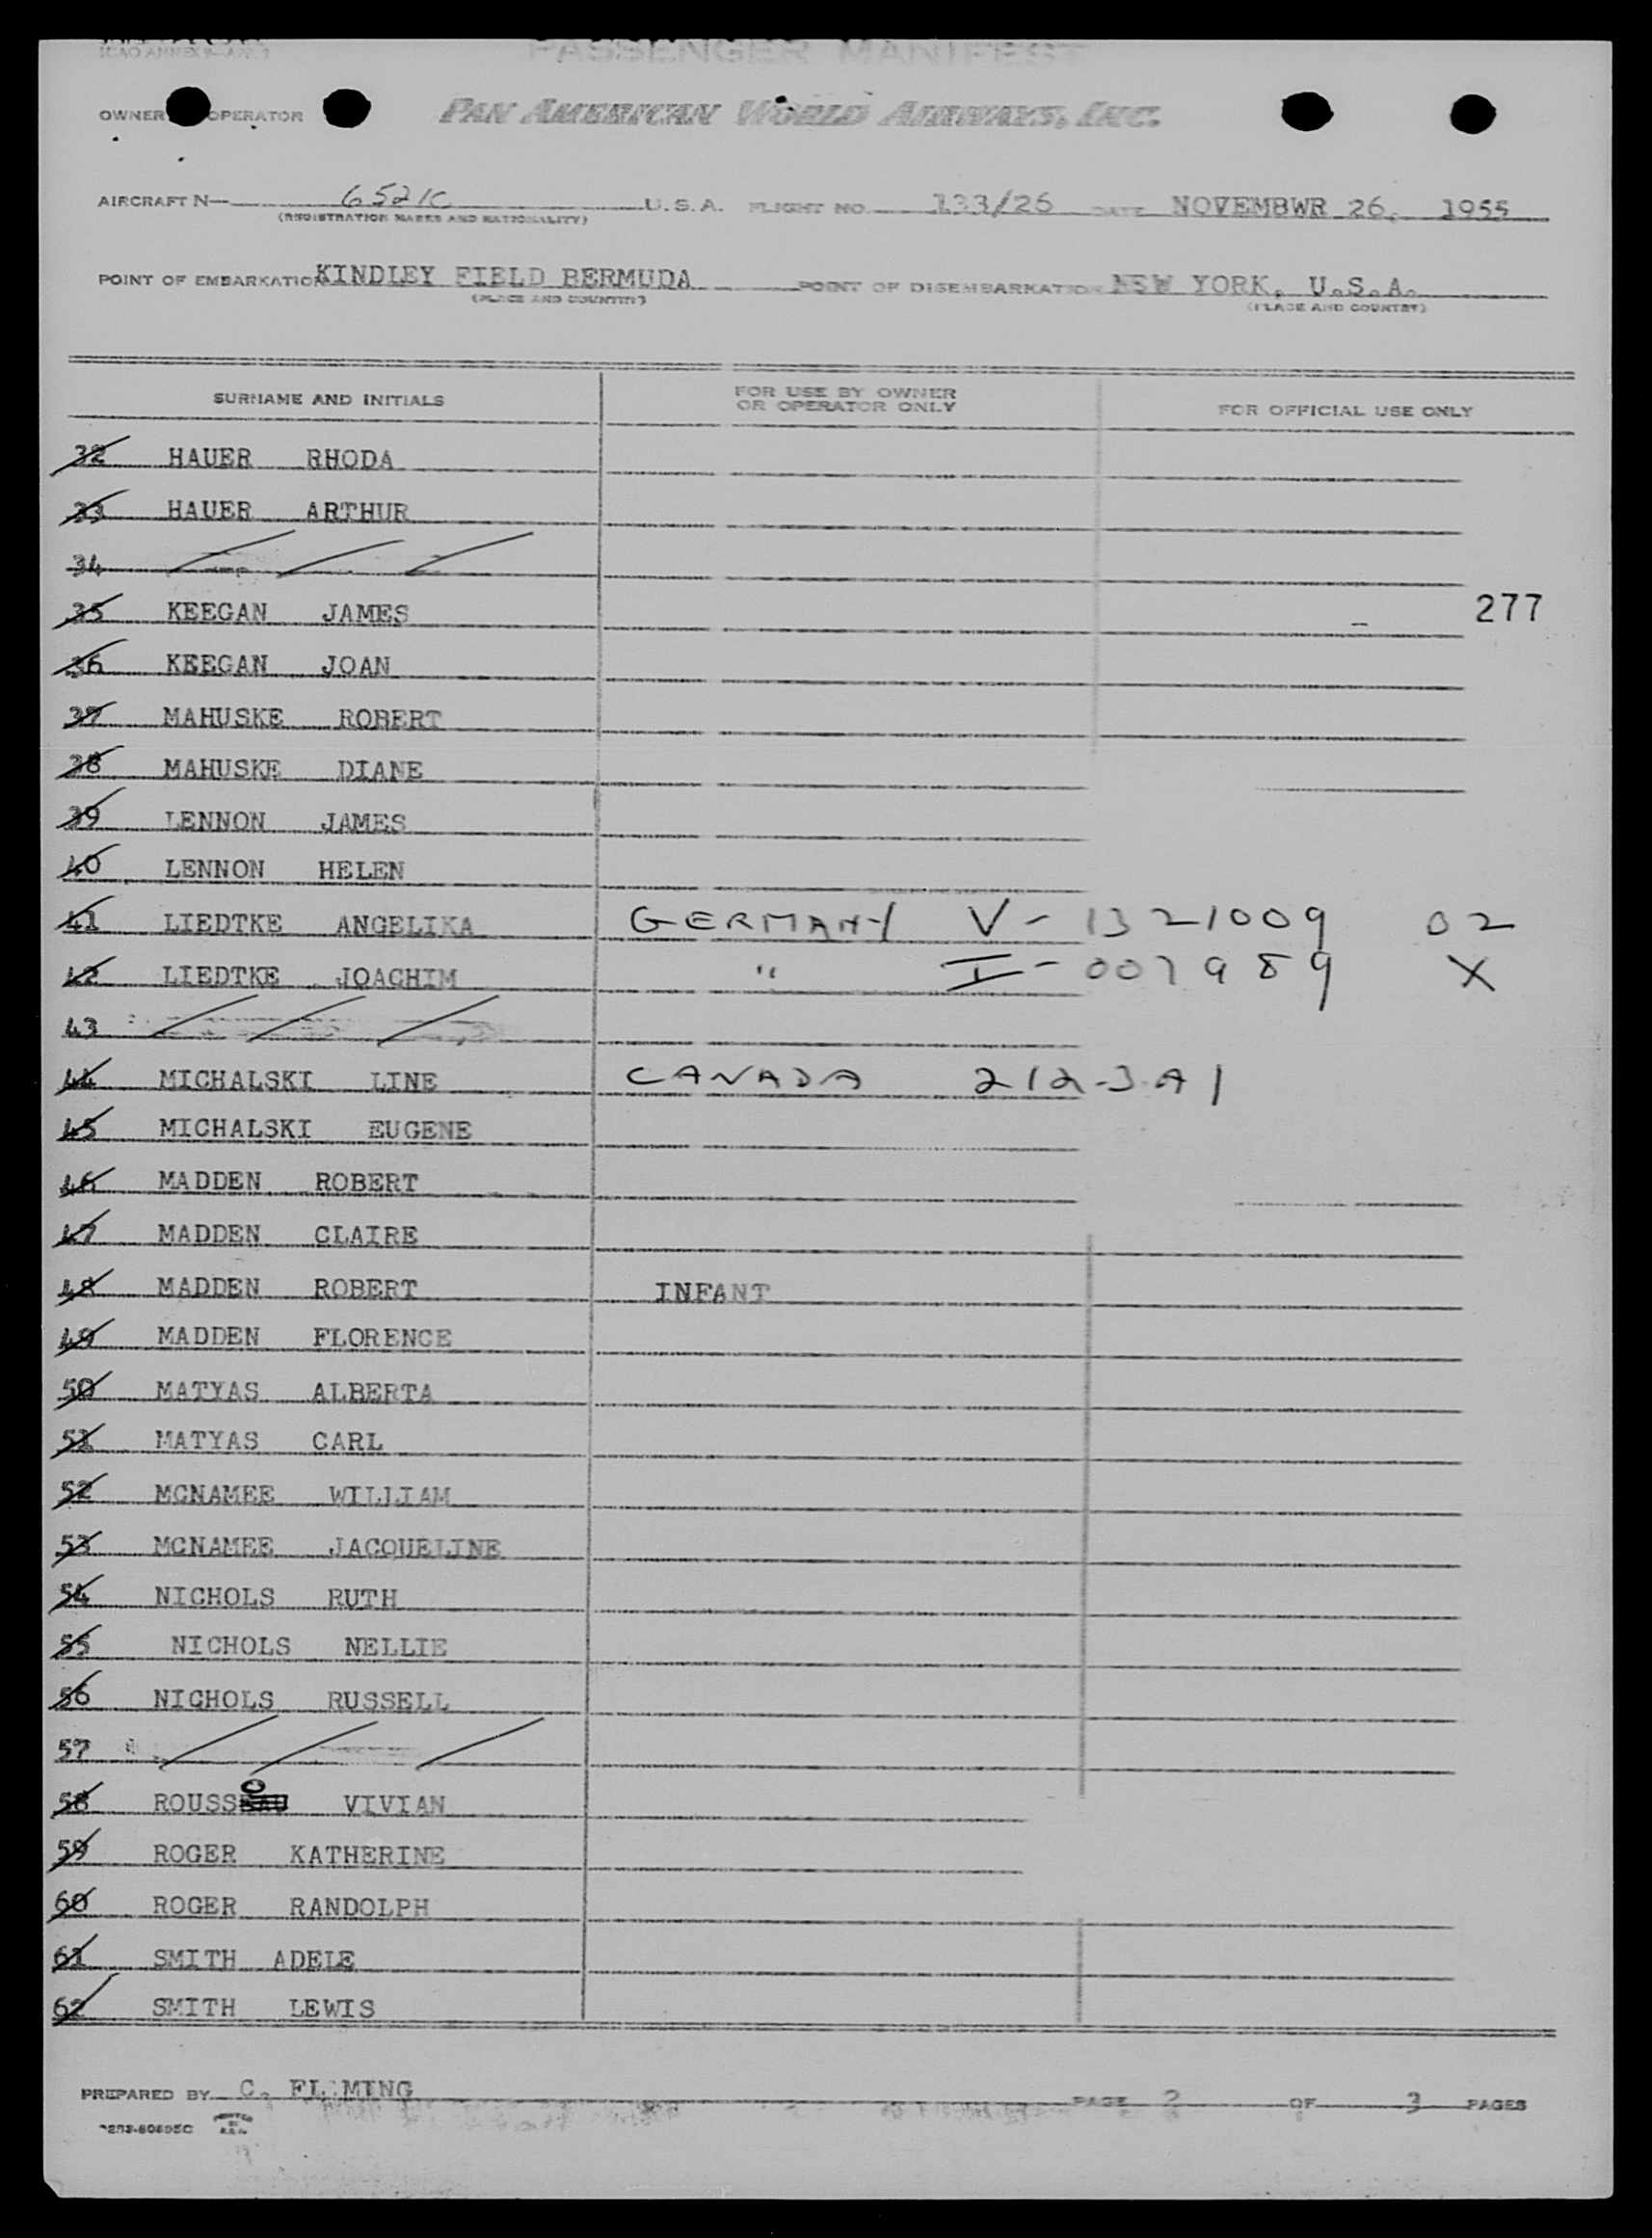 ICAO ANNEX 9—APP. 3
PASSENGER MANIFEST
OWNER OPERATOR PAN AMERICAN WORLD AIRWAYS, INC.
AIRCRAFT N— 6521C U.S.A. FLIGHT NO. 133/26 DATE NOVEMBWR 26, 1955
(REGISTRATION MARKS AND NATIONALITY)
POINT OF EMBARKATION KINDLEY FIELD BERMUDA POINT OF DISEMBARKATION NEW YORK, U.S.A.
(PLACE AND COUNTRY) (PLACE AND COUNTRY)
SURNAME AND INITIALS FOR USE BY OWNER OR OPERATOR ONLY FOR OFFICIAL USE ONLY
32 HAUER RHODA
33 HAUER ARTHUR
34
35 KEEGAN JAMES 277
36 KEEGAN JOAN
37 MAHUSKE ROBERT
38 MAHUSKE DIANE
39 LENNON JAMES
40 LENNON HELEN
41 LIEDTKE ANGELIKA GERMANY V- 1321009 02
42 LIEDTKE JOACHIM " I- 007989 X
43
44 MICHALSKI LINE CANADA 212-3-A1
45 MICHALSKI EUGENE
46 MADDEN ROBERT
47 MADDEN CLAIRE
48 MADDEN ROBERT INFANT
49 MADDEN FLORENCE
50 MATYAS ALBERTA
51 MATYAS CARL
52 MCNAMEE WILLIAM
53 MCNAMEE JACQUELINE
54 NICHOLS RUTH
55 NICHOLS NELLIE
56 NICHOLS RUSSELL
57
58 ROUSSO VIVIAN
59 ROGER KATHERINE
60 ROGER RANDOLPH
61 SMITH ADELE
62 SMITH LEWIS
PREPARED BY C. FLEMING PAGE 2 OF 3 PAGES